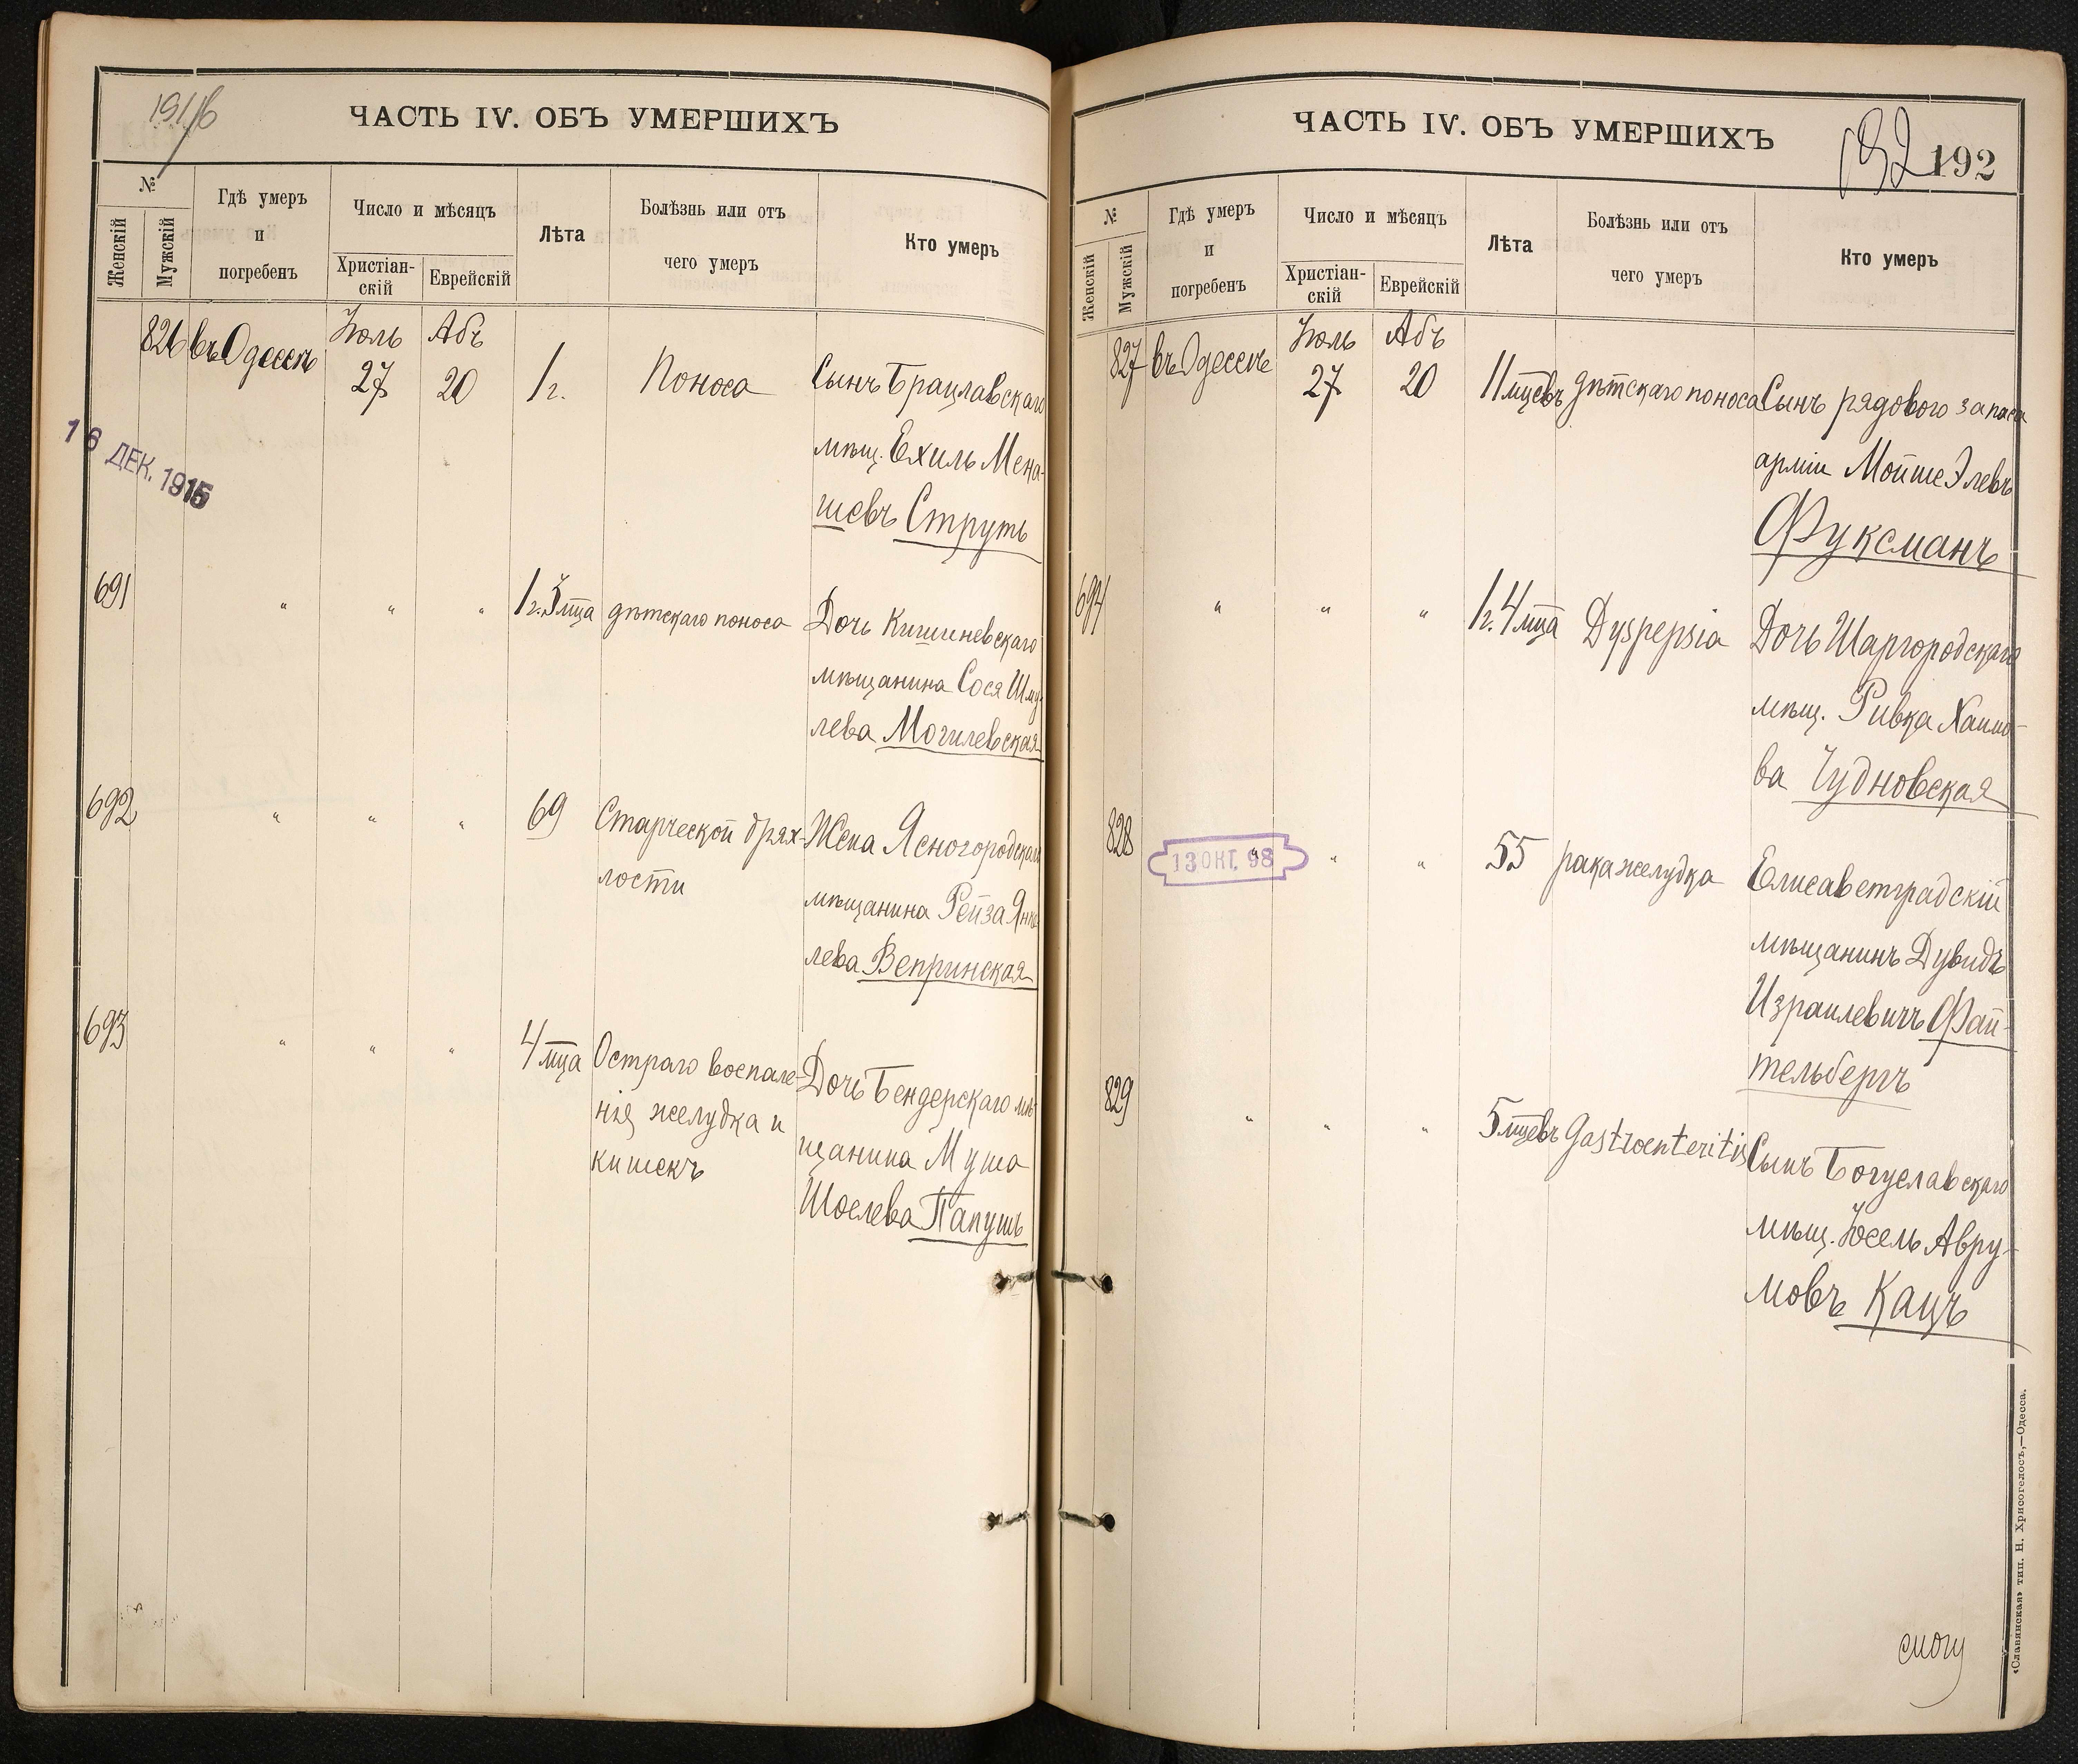 191/б
ЧАСТЬ IV. ОБЪ УМЕРШИХЪ
№
Женскій
Мужскій
Гдѣ умеръ
и
погребенъ
Число и мѣсяцъ
Христіан-
скій
Еврейскій
Лѣта
Болѣзнь или отъ
чего умеръ
Кто умеръ
826 въ Одессѣ Юль 27 Абъ 20 1 г. Поноса Сынъ Брацлавскаго
мѣщ. Ехиль Мена-
шевъ Струть
16 ДЕК. 1915
691 " " " 1 г. 3 мца дѣтскаго поноса Дочь Кишиневскаго
мѣщанина Сося Шму-
лева Могилевская
692 " " " 69 Старческой дрях- Жена Ясногородскаго
лости
мѣщанина Рейза Янке-
лева Вепринская
693 " " " 4 мца Остраго воспале- Дочь Бендерскаго мѣ-
нія желудка и
щанина Муша
кишекъ
Шоелева Папушъ
ЧАСТЬ IV. ОБЪ УМЕРШИХЪ
192 192
№
Женскій
Мужскій
Гдѣ умеръ
и
погребенъ
Число и мѣсяцъ
Христіан-
скій
Еврейскій
Лѣта
Болѣзнь или отъ
чего умеръ
Кто умеръ
827 въ Одессѣ Юль 27 Абъ 20 11 мцевъ дѣтскаго поноса Сынъ рядового запаса
арміи Мойше Элевъ
Фуксманъ
694 " " " 1 г. 4 мца Dyspepsia Дочь Шаргородскаго
мѣщ. Ривка Хаимо-
ва Чудновская
828 " " " 55 рака желудка Елисаветградскій
13 ОКТ. 98
мѣщанинъ Дувидъ
Израилевичъ Фай-
тельбергъ
829 " " " 5 мцевъ Gastroenteritis Сынъ Богуславскаго
мѣщ. Юсель Авру-
мовъ Кацъ
«Славянская» тип. Н. Хрисогелосъ,—Одесса.